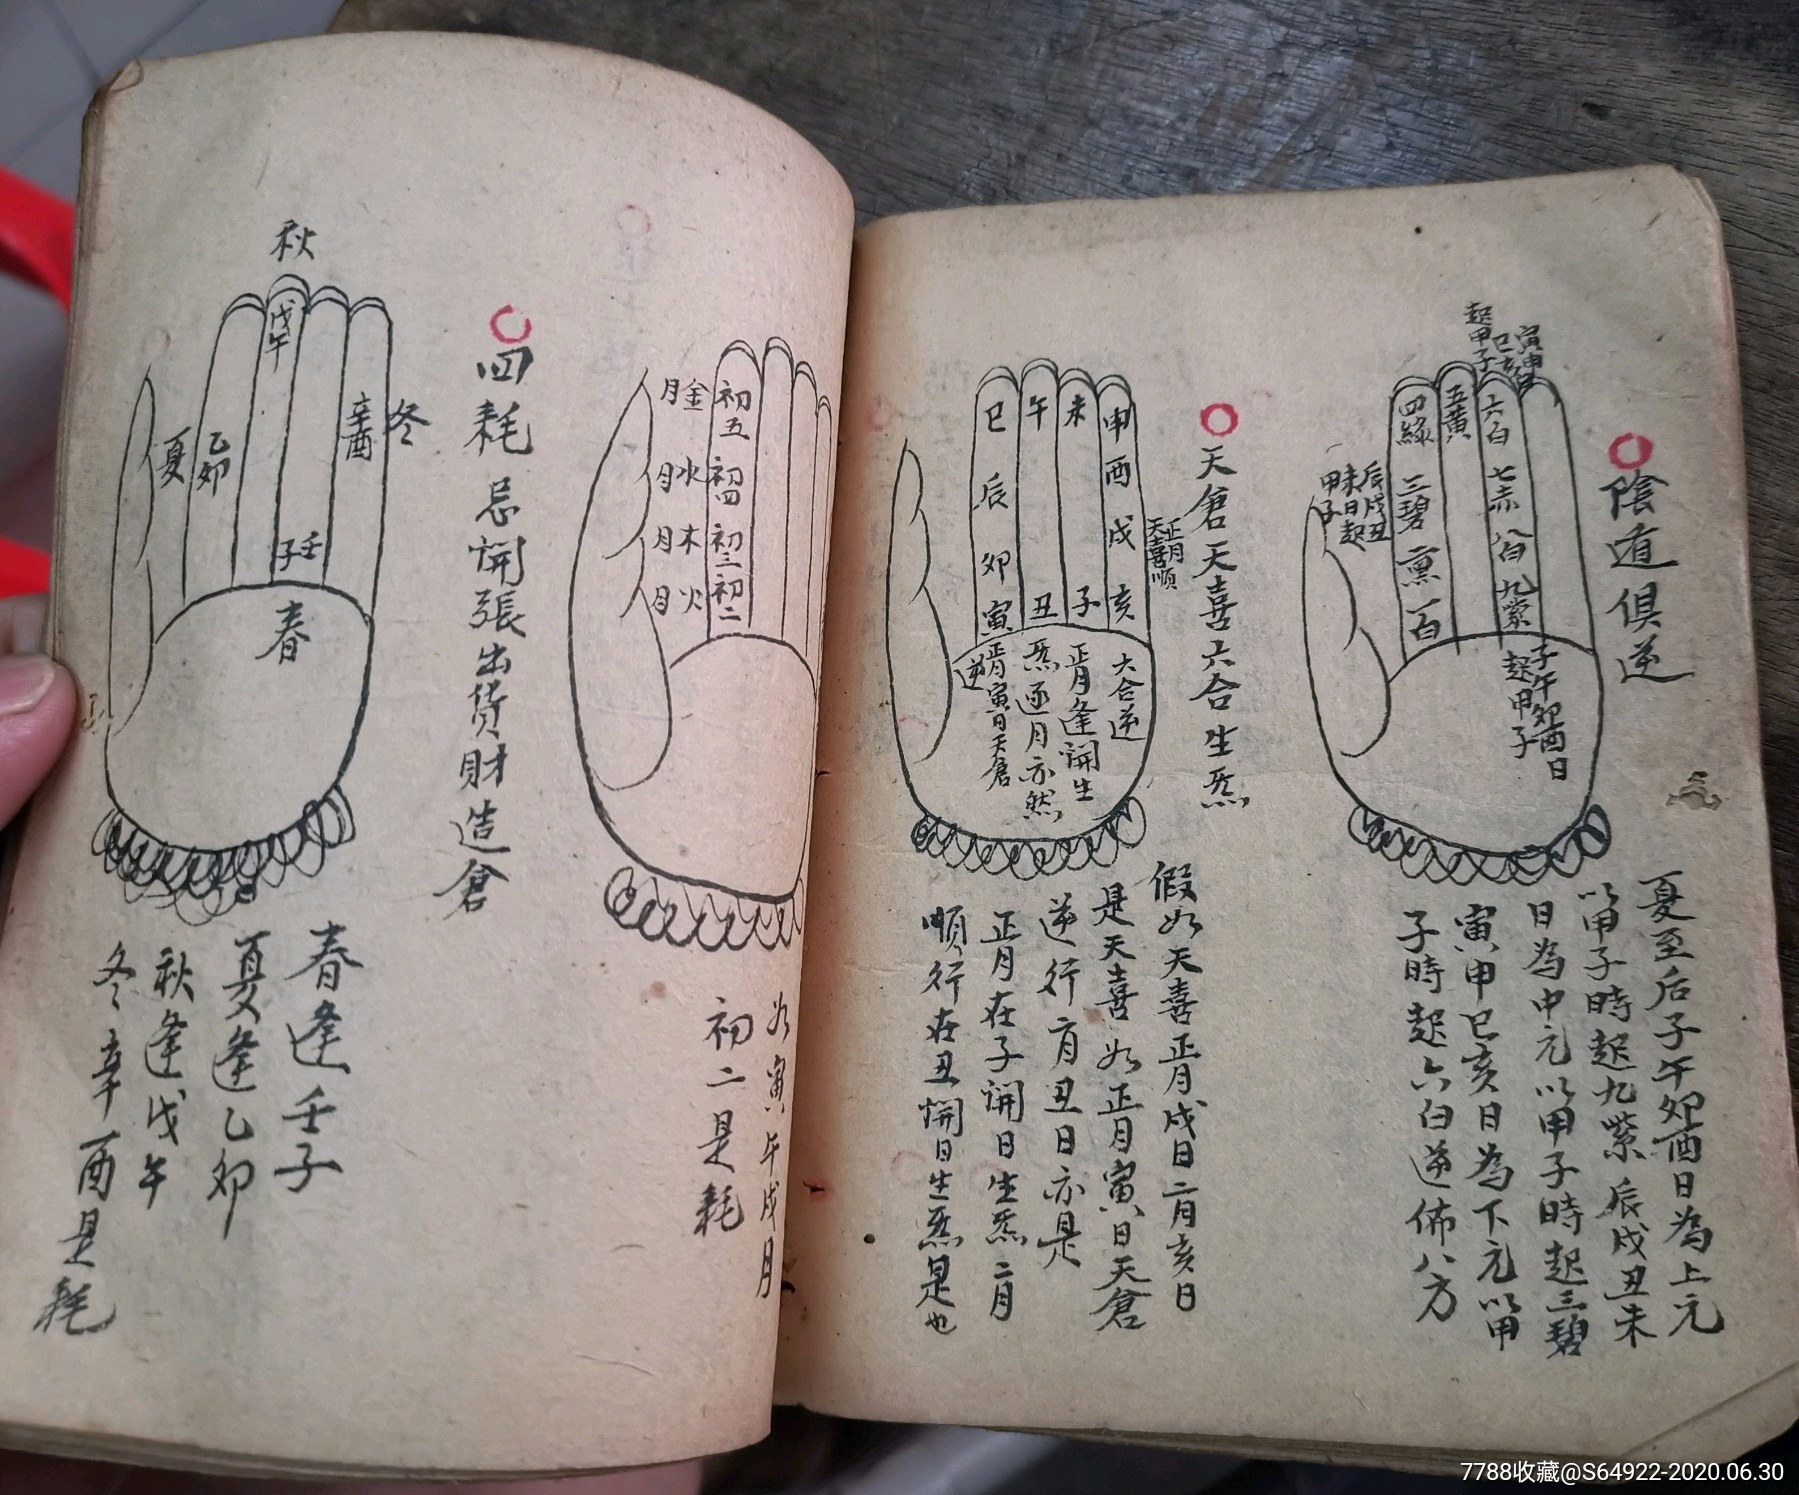 陰道俱逆
寅申
巳亥
起甲子
四綠
三碧
二黑
一白
五黃
六白
七赤
八白
九紫
辰戌丑
未日起
甲子
子午卯酉日
起甲子
夏至后子午卯酉日為上元
以甲子時起九紫辰戌丑未
日為中元以甲子時起三碧
寅申巳亥日為下元以甲
子時起六白逆佈八方
天倉天喜六合生炁
申酉戌亥
未
子
午
丑
巳辰卯寅
正月
天喜順
六合逆
正月逢開生
炁逐月亦然
正月寅日天倉
逆
假如天喜正月戌日二月亥日
是天喜如正月寅日天倉
逆行二月丑日亦是
正月在子開日生炁二月
順行在丑開日生炁是也
初五
初四
初三
初二
金月
水月
木月
火月
如寅午戌月
初二是耗
四耗忌開張出货財造倉
秋
戊午
冬
辛酉
夏
乙卯
壬子
春
春逢壬子
夏逢乙卯
秋逢戊午
冬辛酉是耗
7788收藏@S64922-2020.06.30